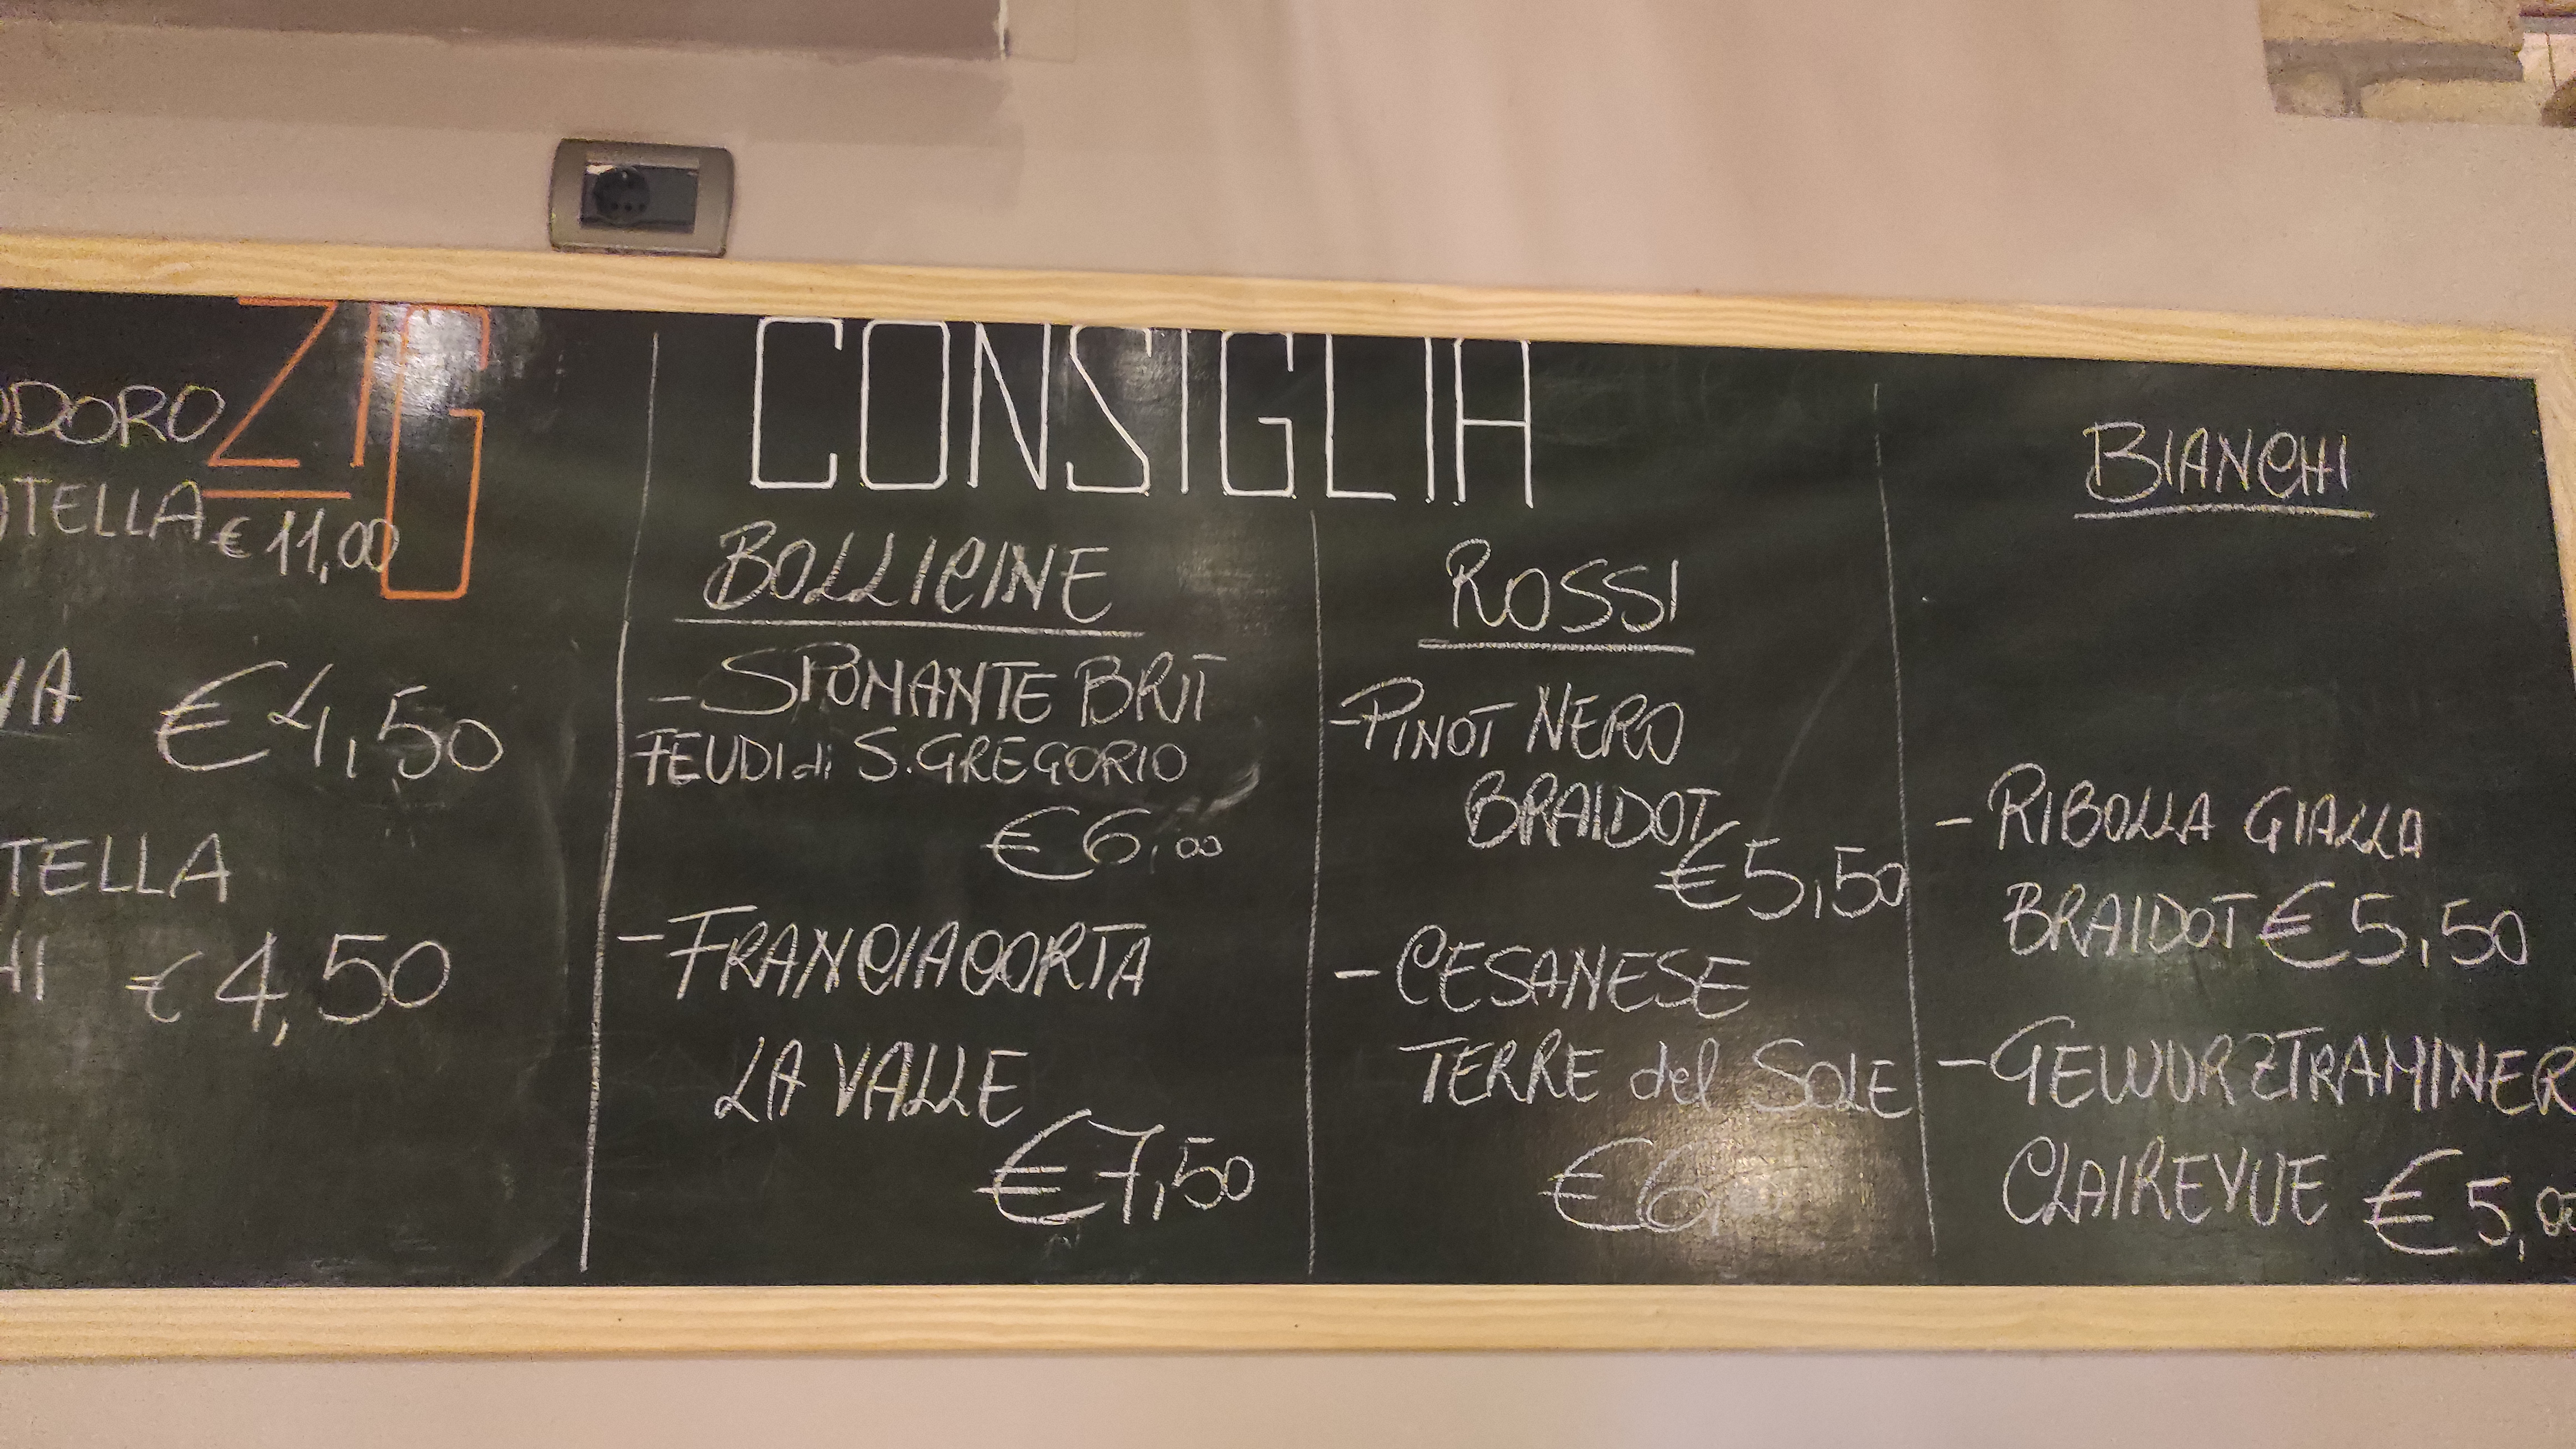 ZIG
CONSIGLIA
ODORO
OTELLA € 11,00
VA
€ 4,50
TELLA
HI € 4,50
BOLLICINE
- SPUMANTE BRUT
FEUDI di S. GREGORIO
€ 6,00
- FRANCIACORTA
LA VALLE
€ 7,50
ROSSI
- PINOT NERO
BRAIDOT
€ 5,50
- CESANESE
TERRE del SOLE
BIANCHI
- RIBOLLA GIALLA
BRAIDOT € 5,50
- GEWURZTRAMINER
CLAIREVUE € 5,00